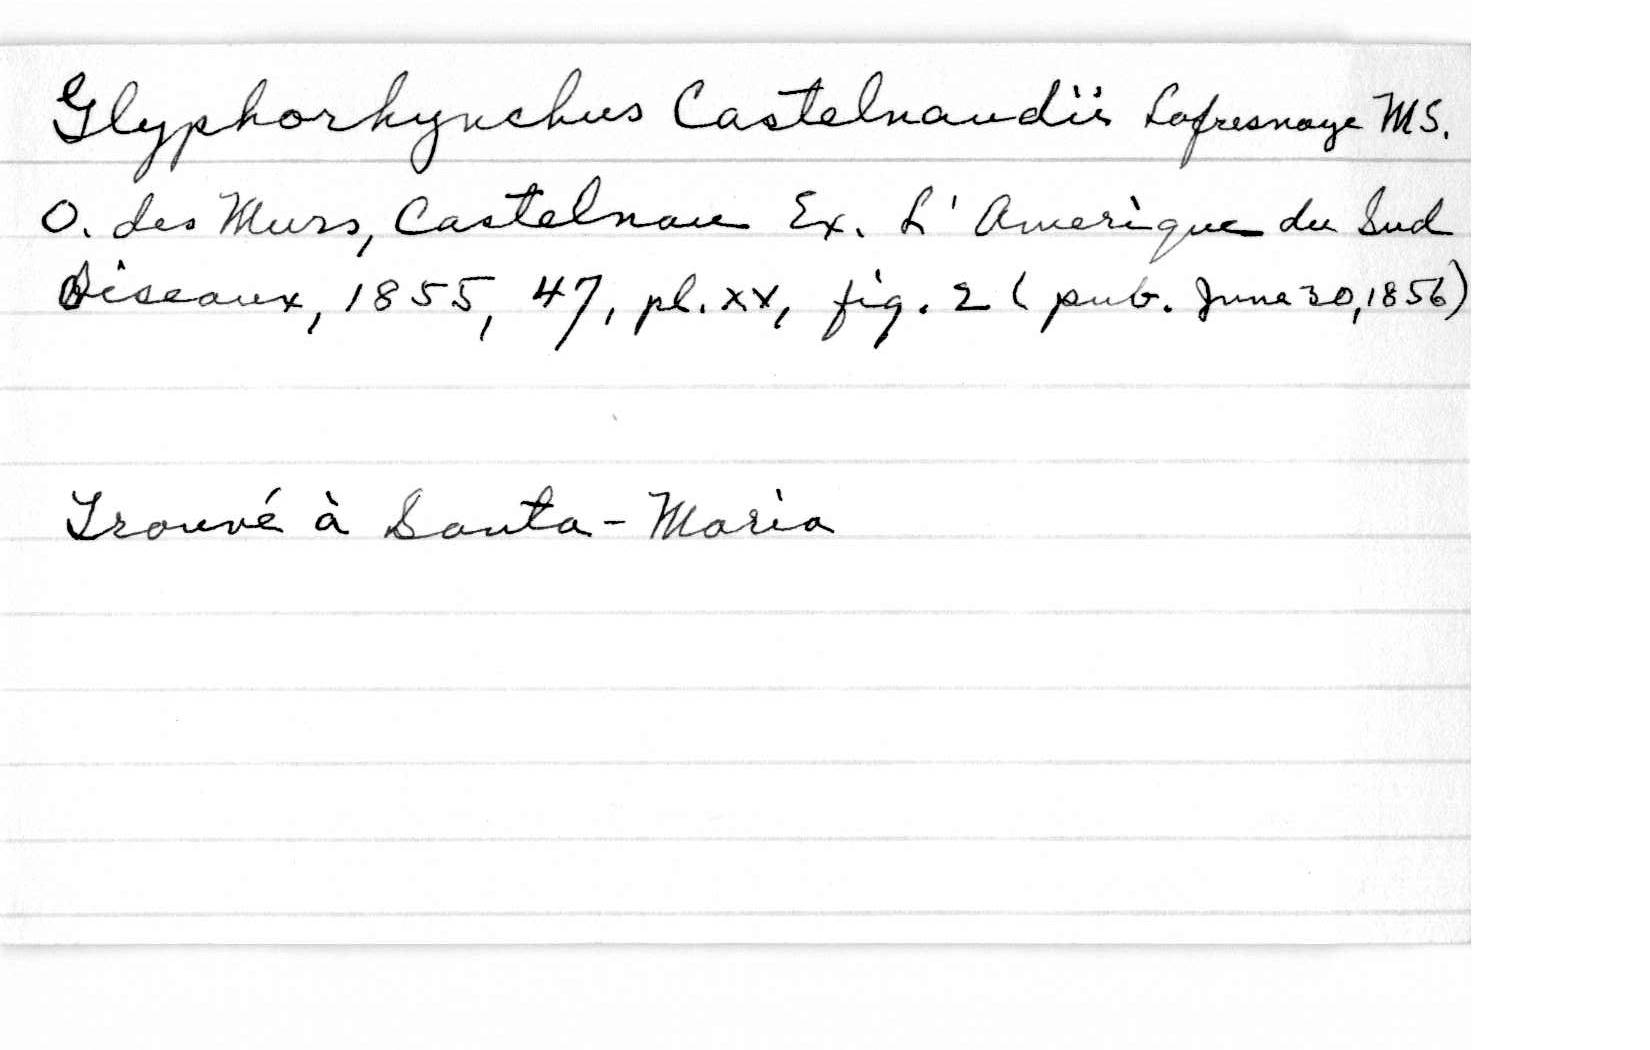 Glyphorhynchus Castelnaudii Lafresnaye MS.
O. des Murs, Castelnau Ex. L'Amerique du Sud
Oiseaux, 1855, 47, pl. XX, fig. 2 (pub. June 30, 1856)
Trouvé à Santa-Maria